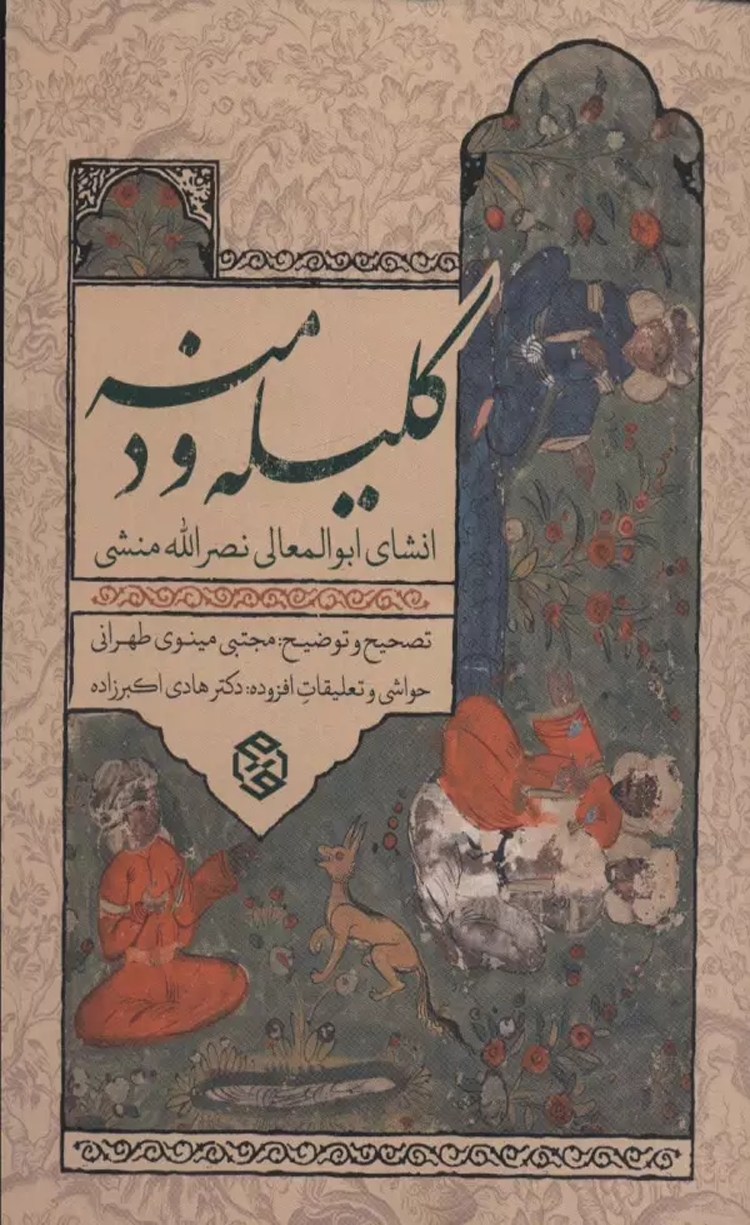 کلیله و دمنه
انشای ابوالمعالی نصرالله منشی
تصحیح و توضیح: مجتبی مینوی طهرانی
حواشی و تعلیقاتِ افزوده: دکتر هادی اکبرزاده